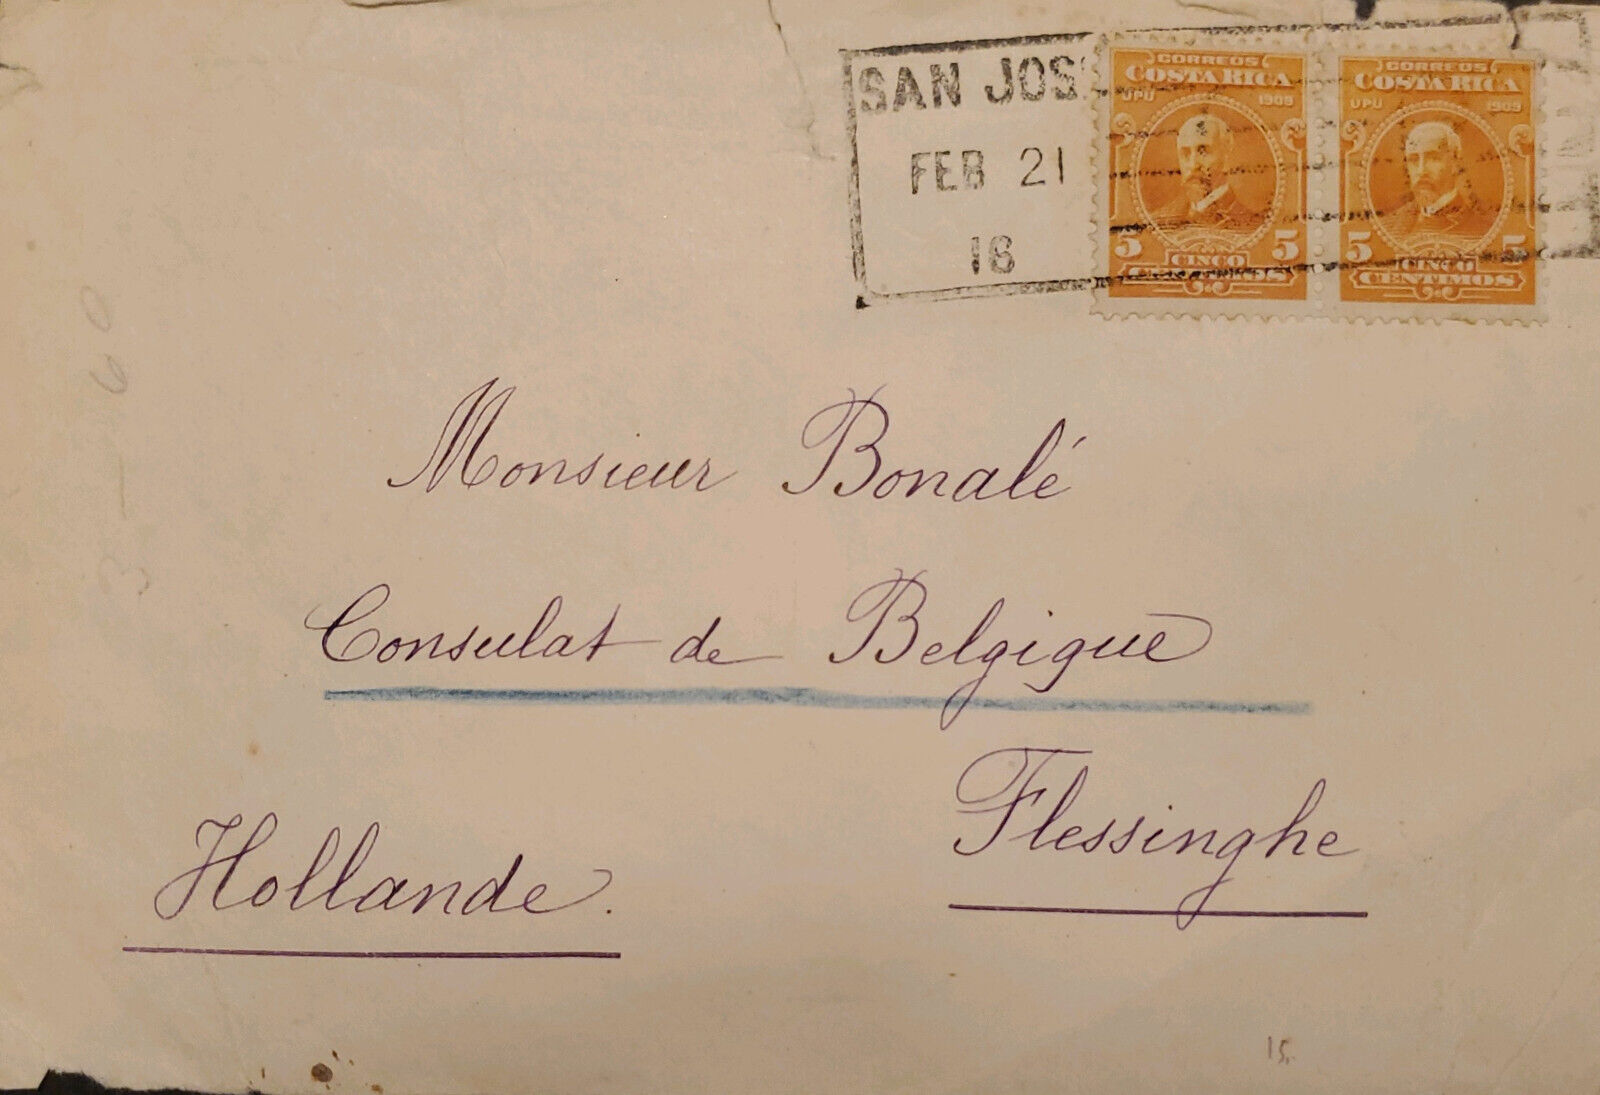 SAN JOS
FEB 21
16
CORREOS
COSTA RICA
UPU 1909
5 5
CINCO
CENTIMOS
CORREOS
COSTA RICA
UPU 1909
5 5
CINCO
CENTIMOS
Monsieur Bonalé
Consulat de Belgique
Flessinghe
Hollande.
15.